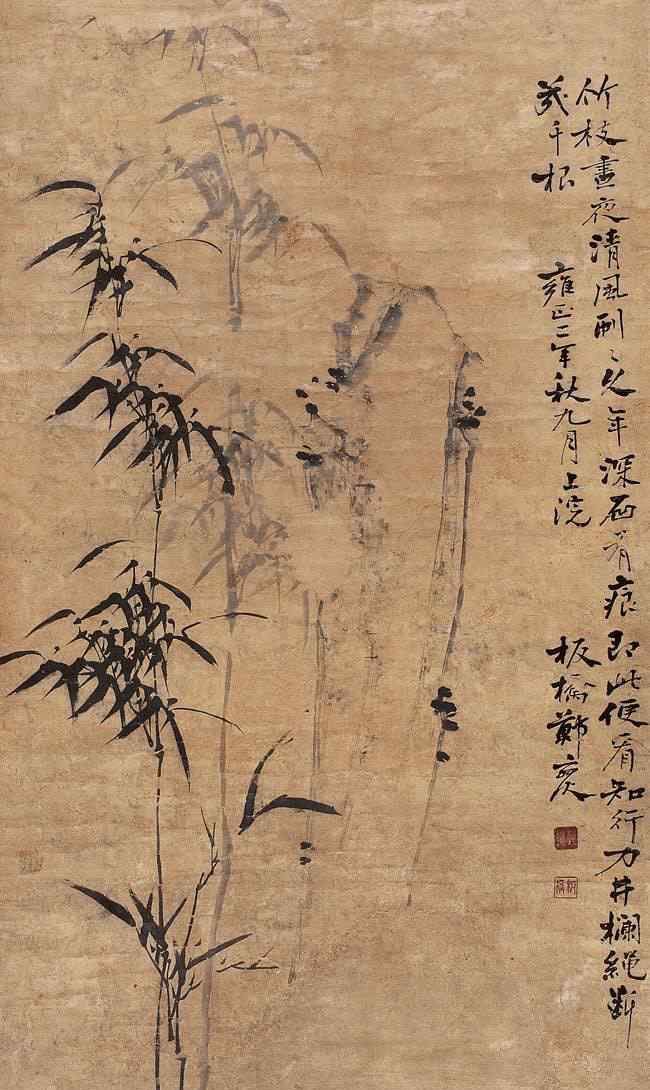 竹枝晝夜清風刷〻久年深石有痕即此便看知行力井欄繩斷
幾千根 雍正二年秋九月上浣 板橋鄭燮